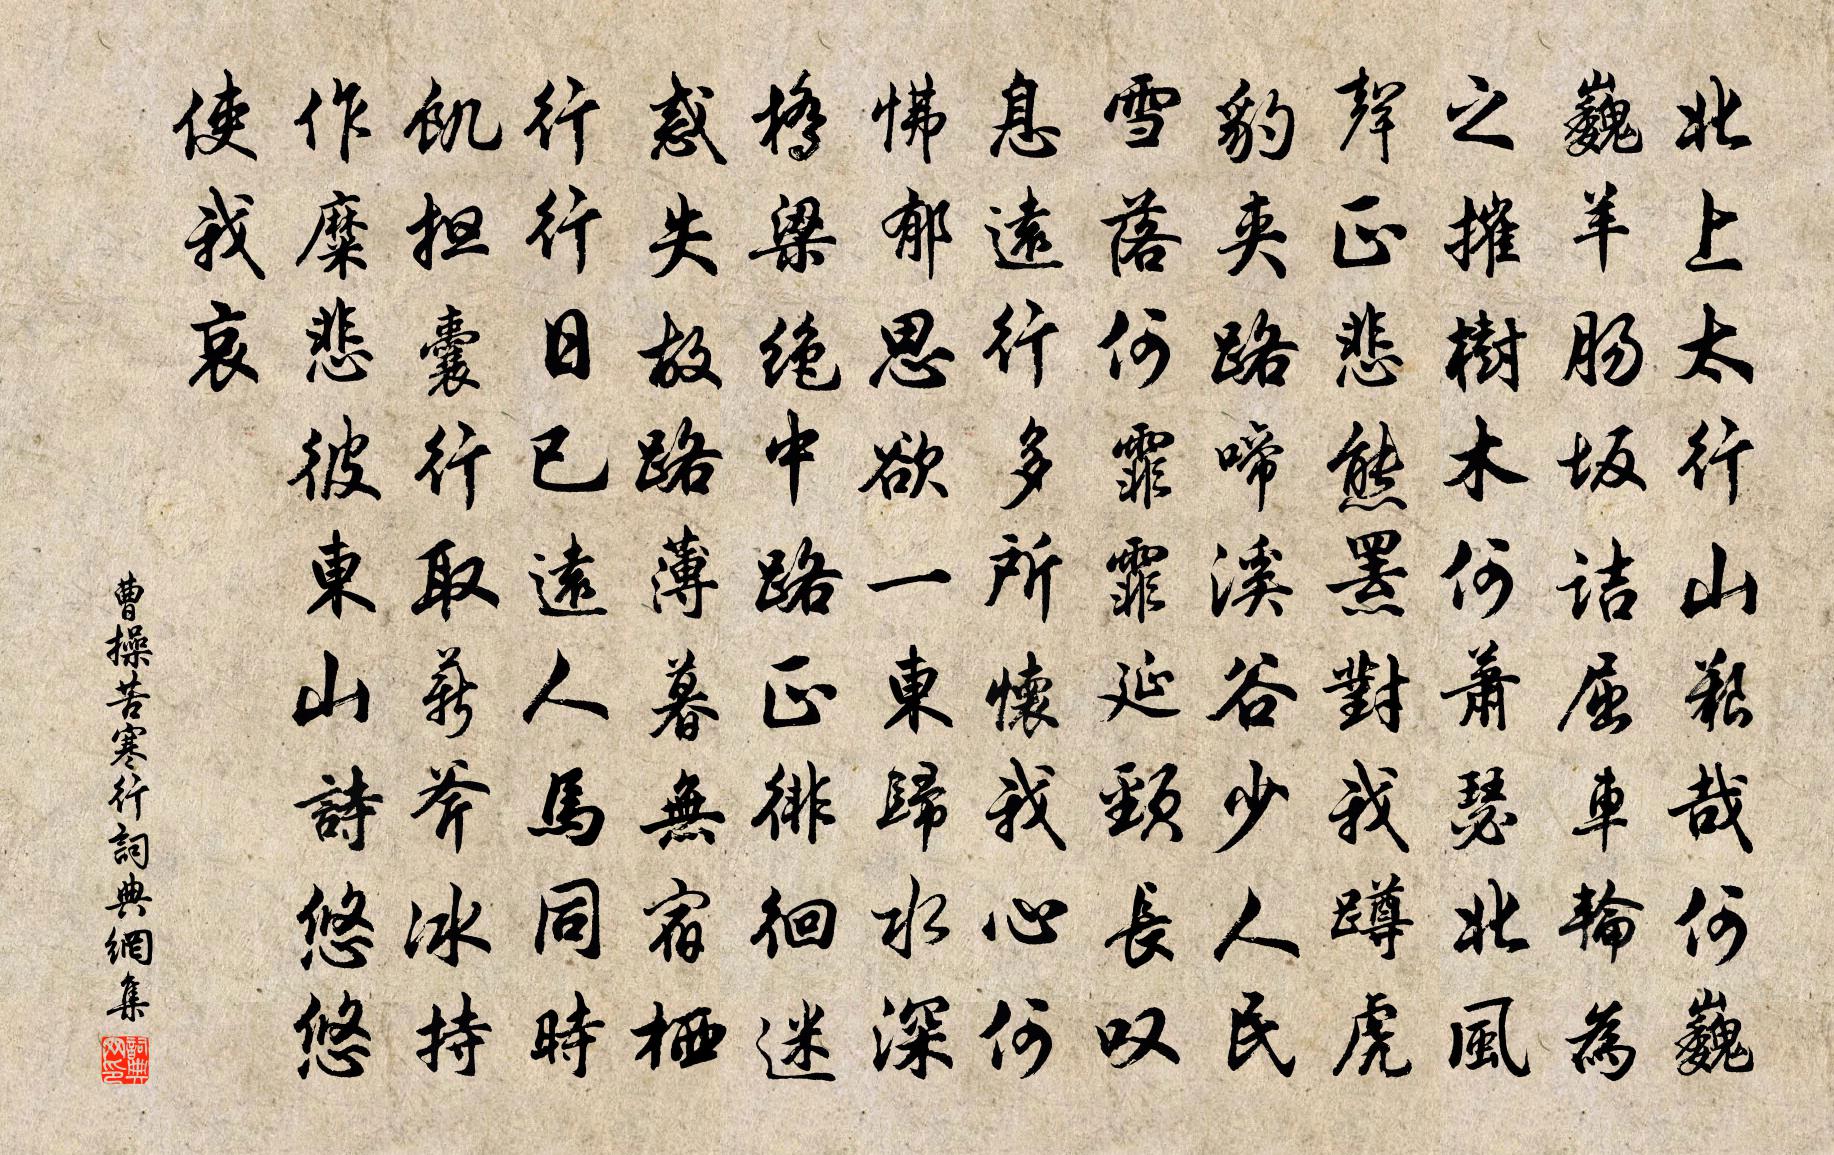 北上太行山艱哉何巍
巍羊腸坂詰屈車輪為
之摧樹木何蕭瑟北風
聲正悲熊羆對我蹲虎
豹夾路啼溪谷少人民
雪落何霏霏延頸長叹
息遠行多所懷我心何
怫郁思欲一東歸水深
橋梁絕中路正徘徊迷
惑失故路薄暮無宿栖
行行日已遠人馬同時
飢担囊行取薪斧冰持
作糜悲彼東山詩悠悠
使我哀
曹操苦寒行詞典網集
詞典网印